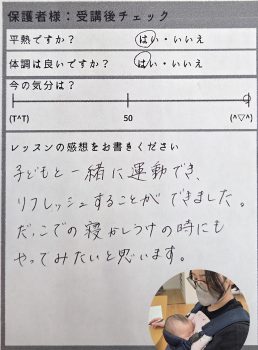 保護者様：受講後チェック
平熱ですか？ はい・いいえ
体調は良いですか？ はい・いいえ
今の気分は？
(T^T) 50 (^▽^)
レッスンの感想をお書きください
子どもと一緒に運動でき、
リフレッシュすることができました。
だっこでの寝かしつけの時にも
やってみたいと思います。